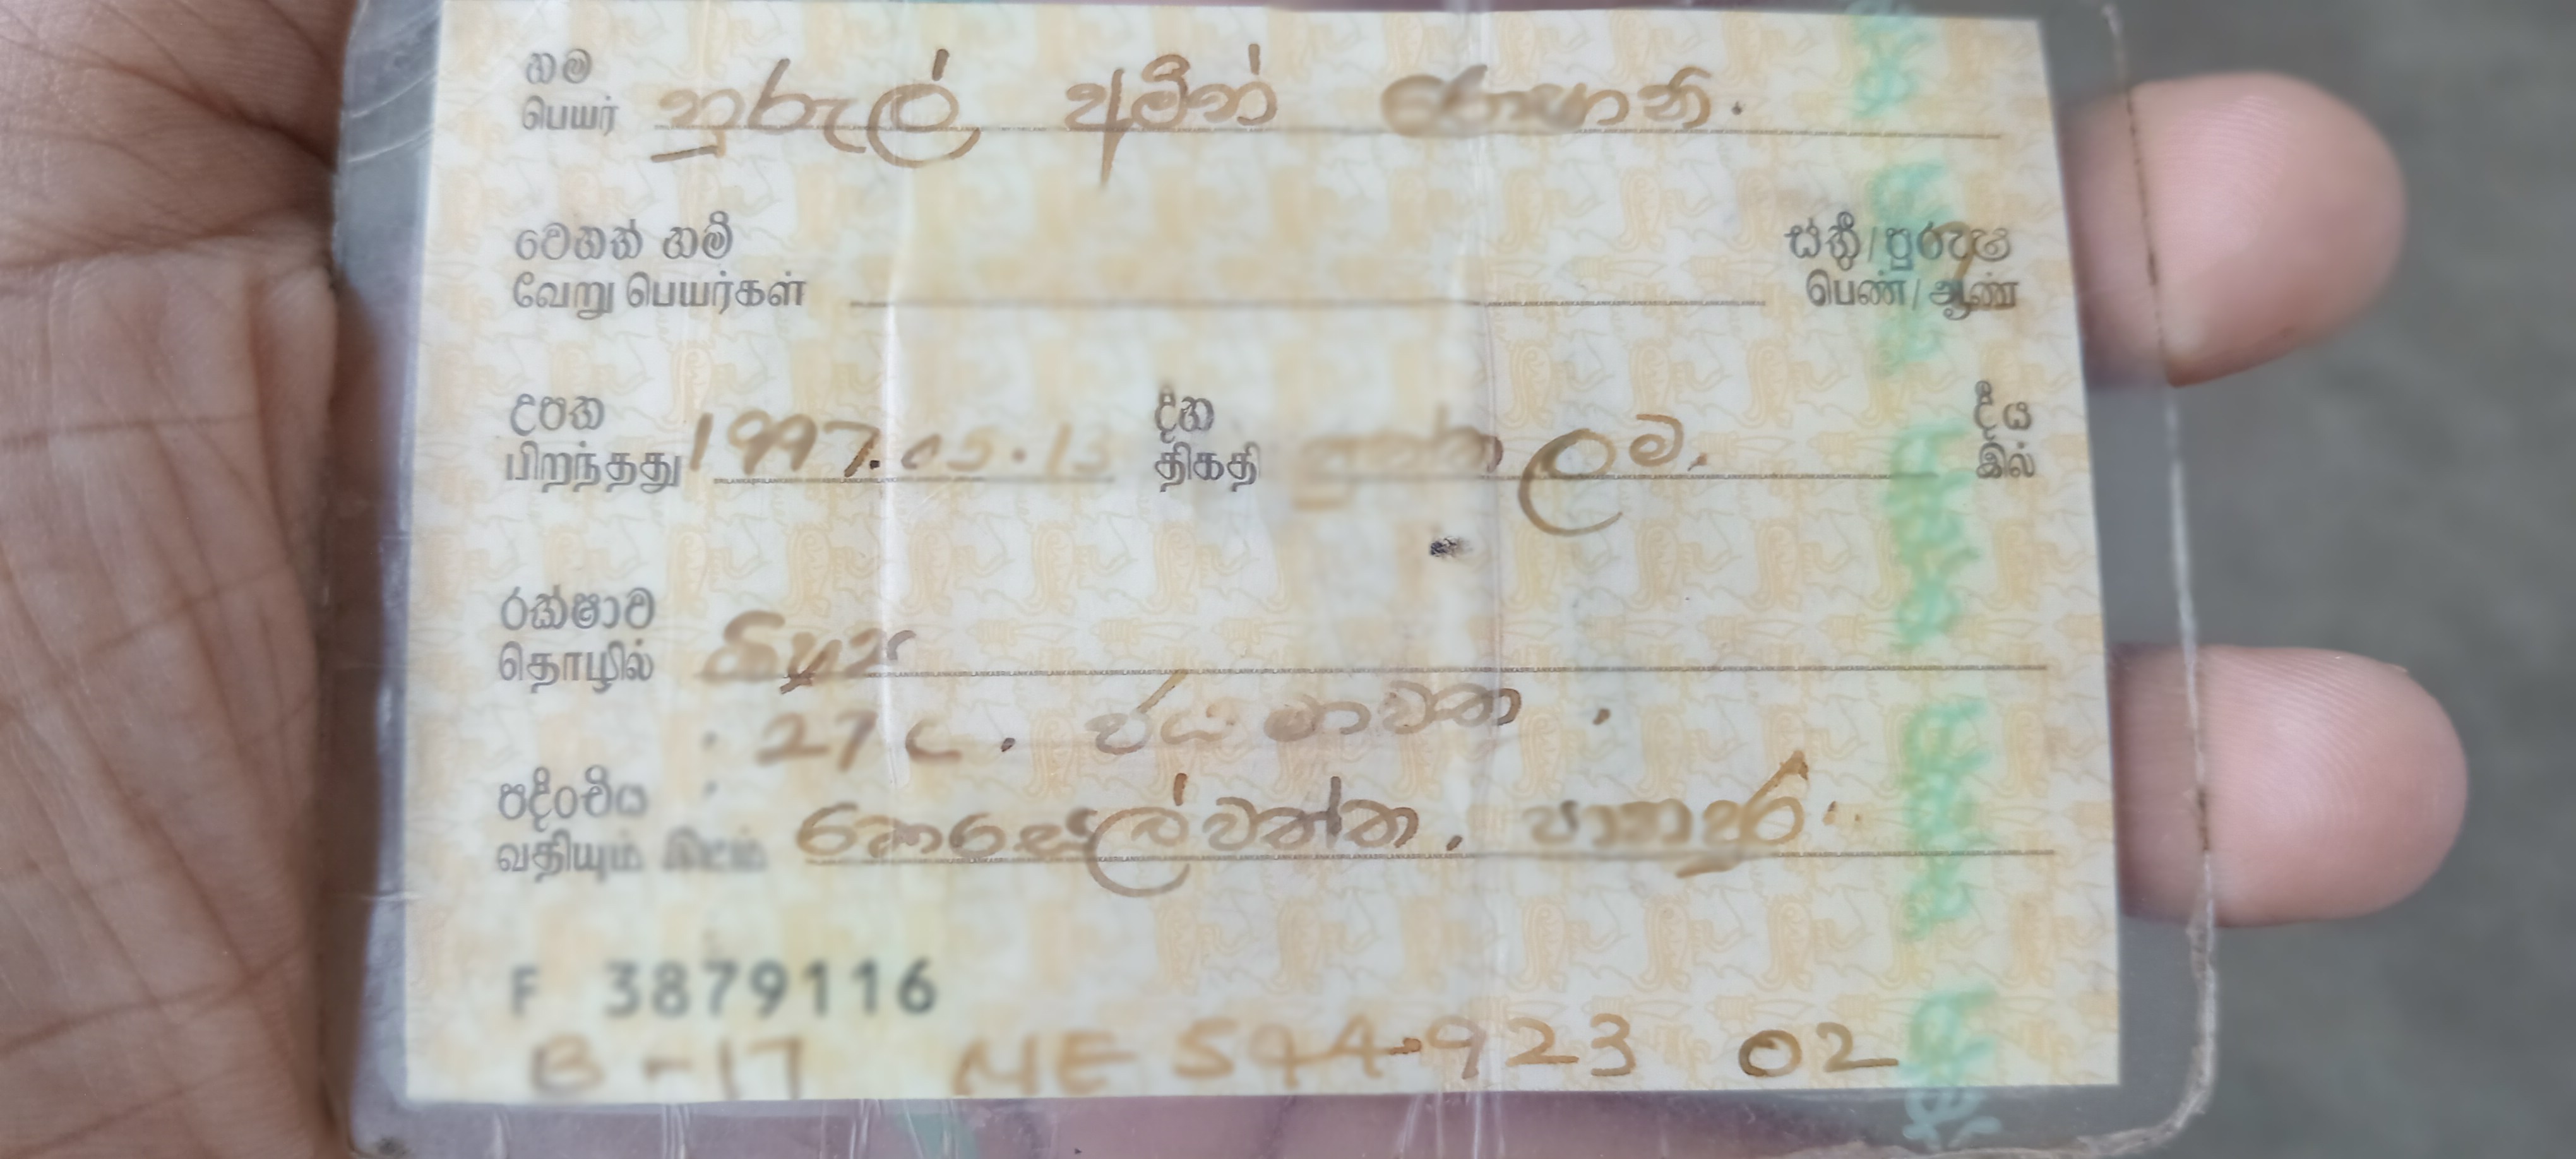 නම
பெயர் නුරුල් අමීන් රොහානි.
වෙනත් නම්
வேறு பெயர்கள்
ස්ත්‍රී/පුරුෂ
பெண்/ஆண்
උපන
பிறந்தது 1997.05.13 දින
திகதி ලම. දීය
இல்
රක්ෂාව
தொழில்
27 C. ජය මාවත.
පදිංචිය
வதியும் இடம் කෙසෙල්වත්ත. පානදුර.
F 3879116
B-17 NE 594-923 02